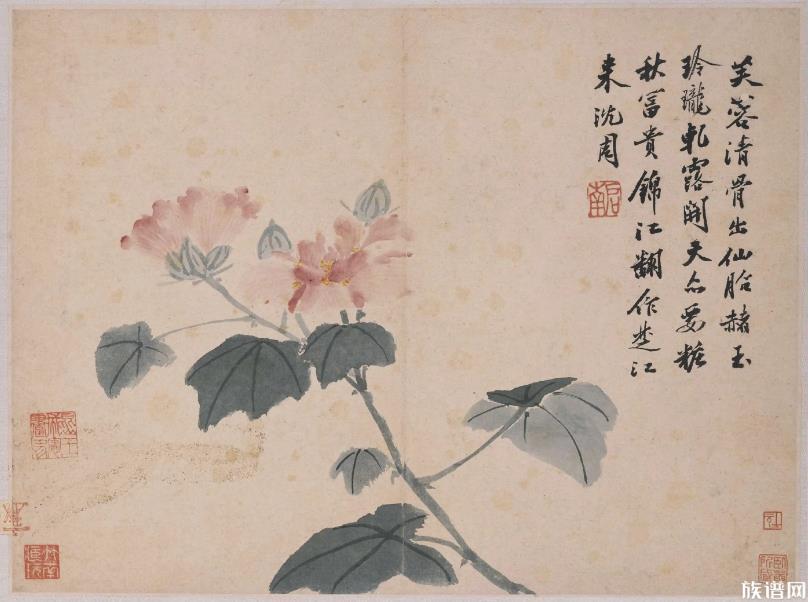 芙蓉清骨出仙胎赭玉
玲瓏軋露開天亦要粧
秋富貴錦江翻作楚江
来沈周
啟南
族谱网